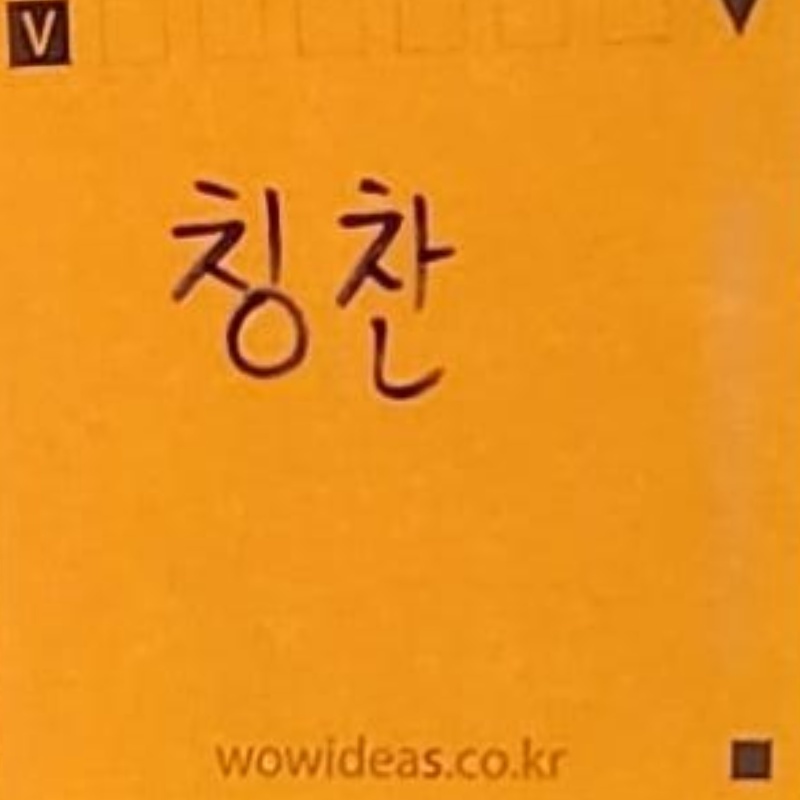 V
칭찬
wowideas.co.kr